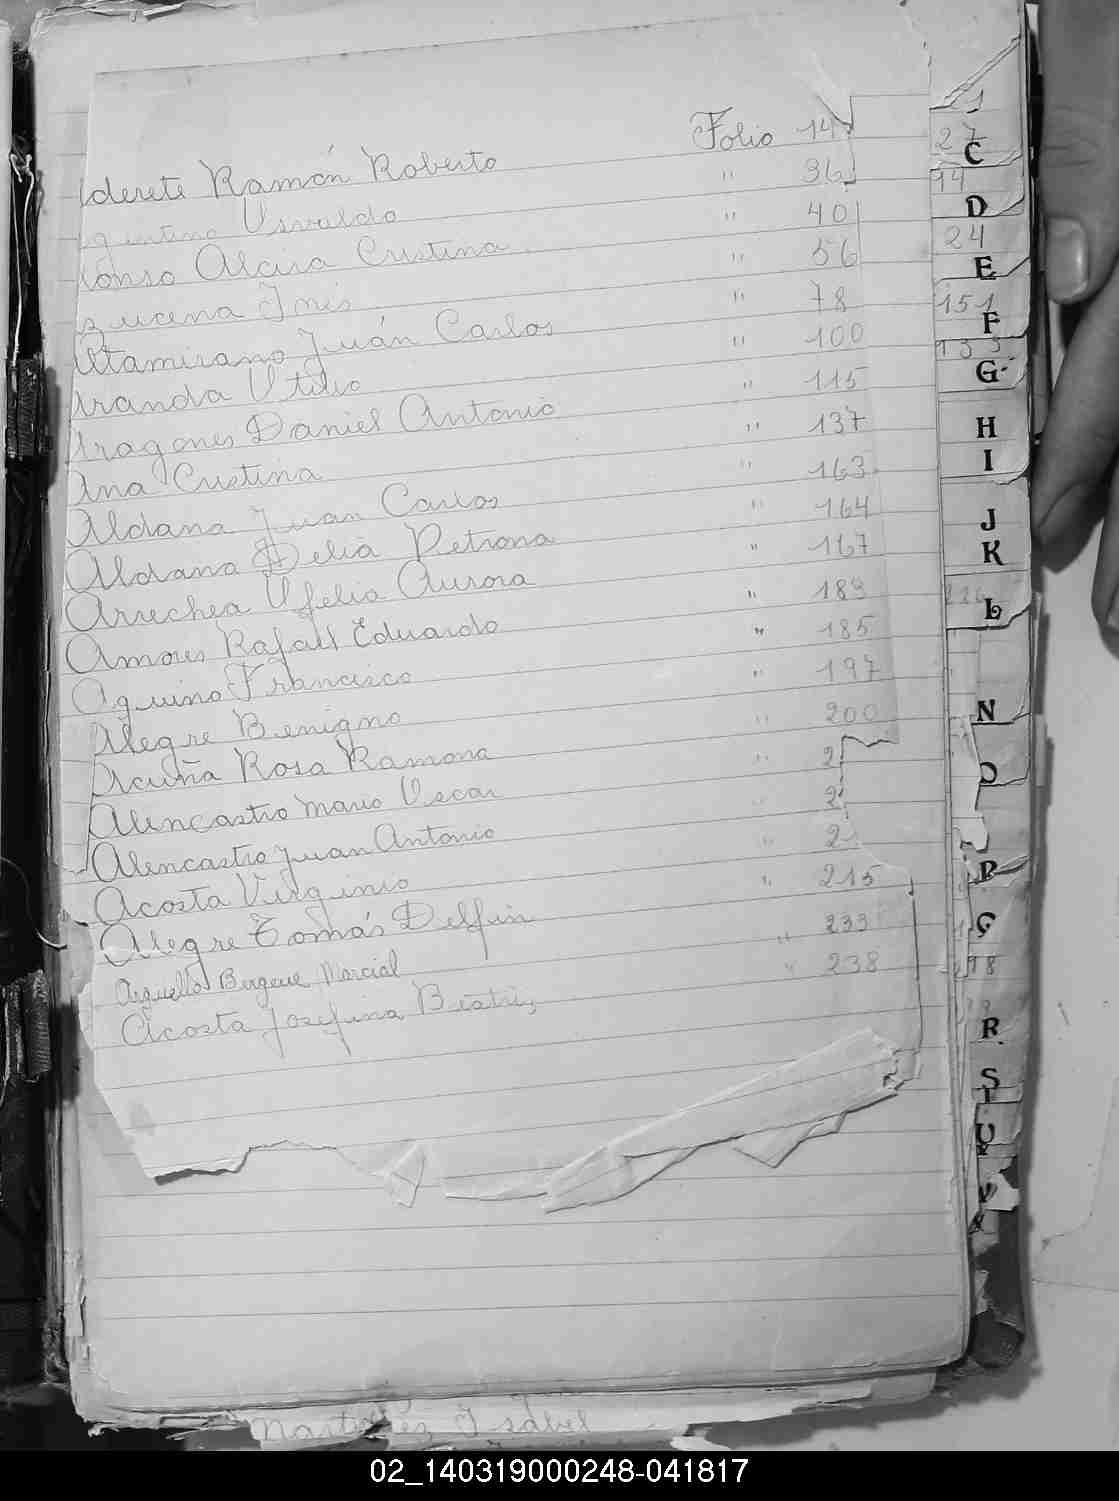 lderete Ramón Roberto Folio 14
gentino Osvaldo " 36
lonso Alcira Cristina " 40
zucena Inés " 56
Altamirano Juán Carlos " 78
Aranda Otilio " 100
Aragones Daniel Antonio " 115
Ana Cristina " 137
Aldana Juan Carlos " 163
Aldana Delia Petrona " 164
Arrechea Ofelia Aurora " 167
Amores Rafael Eduardo " 183
Aquino Francisco " 185
Alegre Benigno " 197
Acuña Rosa Ramona " 200
Alencastro Mario Oscar " 2
Alencastro Juan Antonio " 2
Acosta Virginio " 2
Alegre Tomás Delfin " 215
Arguello Marcial " 233
Acosta Josefina Beatriz " 238
1
27
C
14
D
24
E
151
F
133
G
H
I
J
K
L
N
O
P
Q
98
R
S
T
U
V
Martinez Isabel
02_140319000248-041817